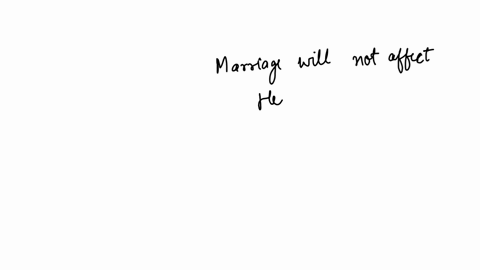 Marriage will not affect
He